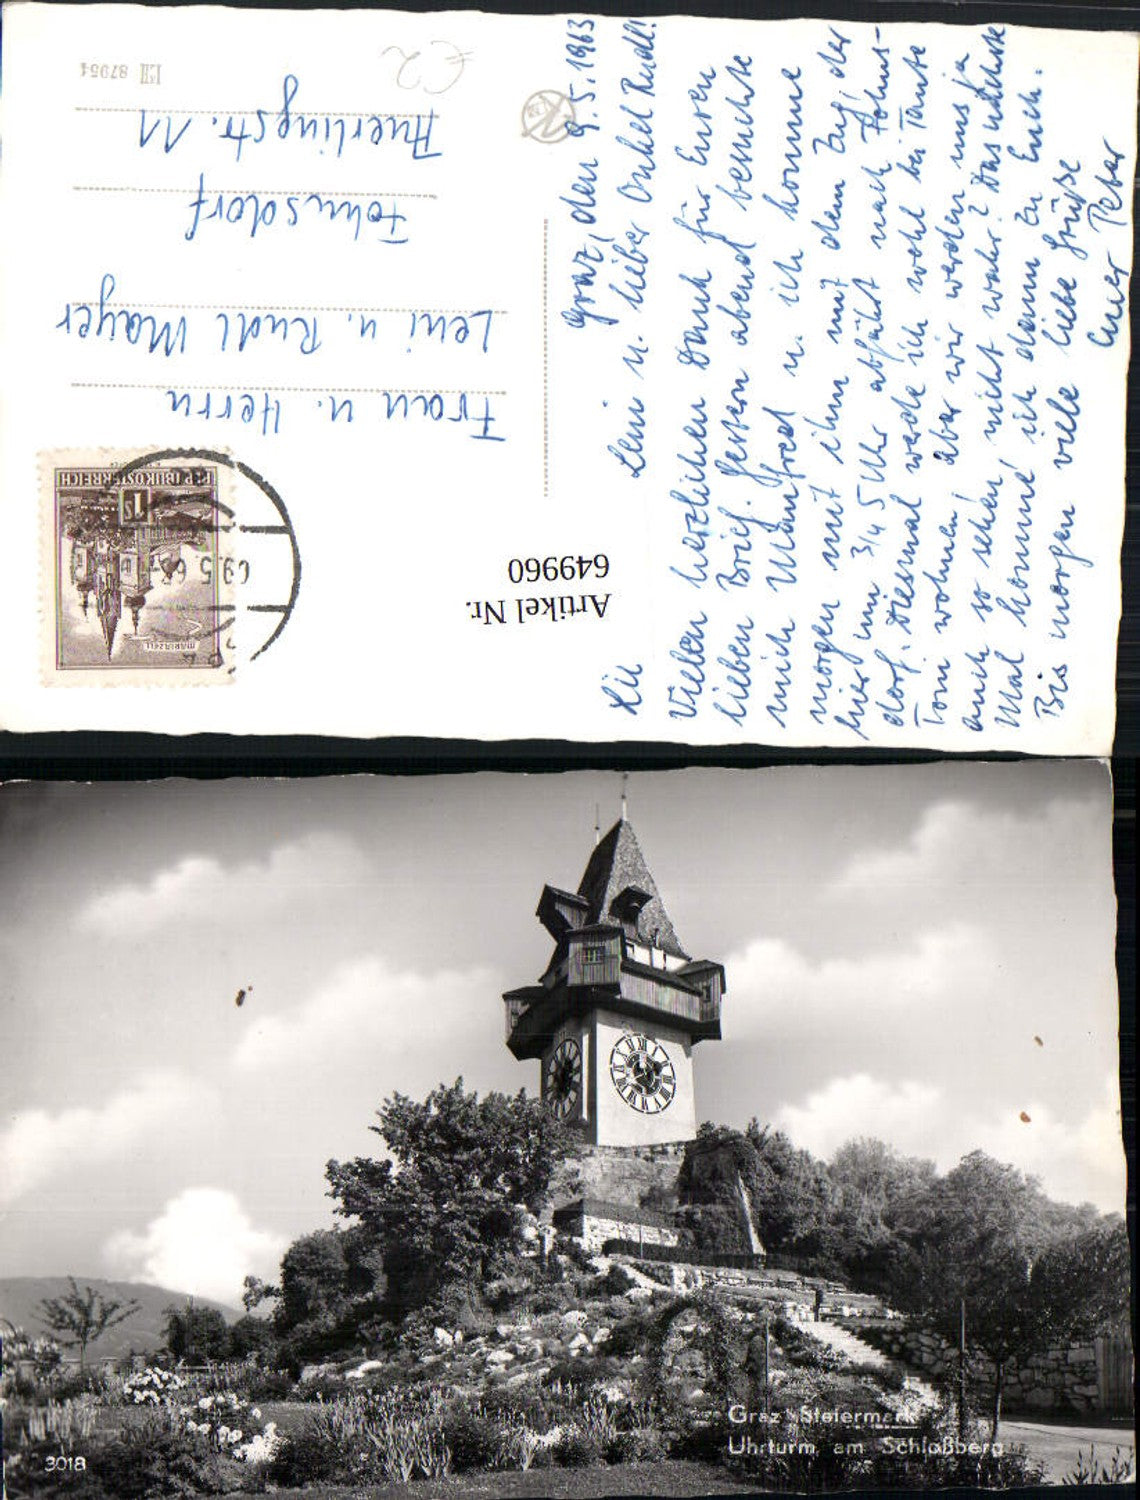 Graz, den 9.5.1963
Leni u. lieber Onkel Rudl!
Vielen herzlichen Dank für Euren
lieben Brief. Gestern abend besuchte
mich Manfred u. ich komme
morgen mit ihm mit dem Zug, der
hier um 3/4 5 Uhr abfährt nach Fohns-
dorf. Diesmal werde ich wohl bei Tante
Toni wohnen, aber wir werden uns ja
auch so sehen, nicht wahr? Das nächste
Mal komme ich dann zu Euch.
Bis morgen viele liebe Grüße
Euer Peter
Frau u. Herrn
Leni u. Rudl Mayer
Fohnsdorf
Auerlingstr. 11
87954
€2
REPUBLIK ÖSTERREICH
1S
MARIAZELL
Artikel Nr.
649960
Graz Steiermark
Uhrturm am Schloßberg
3018